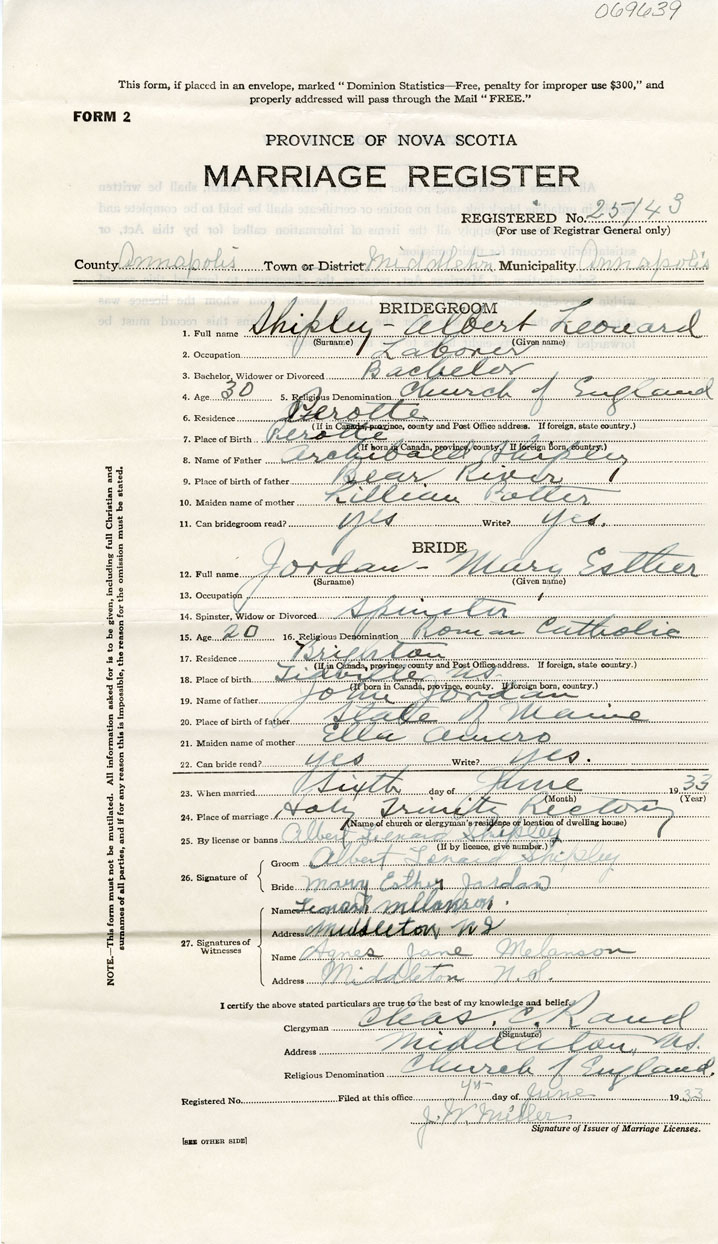 069639
This form, if placed in an envelope, marked "Dominion Statistics—Free, penalty for improper use $300," and
properly addressed will pass through the Mail "FREE."
FORM 2
PROVINCE OF NOVA SCOTIA
MARRIAGE REGISTER
REGISTERED No. 25143
(For use of Registrar General only)
County Annapolis Town or District Middleton Municipality Annapolis
BRIDEGROOM
1. Full name Shipley - Albert Leonard
(Surname) (Given name)
2. Occupation Laborer
3. Bachelor, Widower or Divorced Bachelor
4. Age 30 5. Religious Denomination Church of England
6. Residence Perotte
(If in Canada, province, county and Post Office address. If foreign, state country.)
7. Place of Birth Perotte
(If born in Canada, province, county. If foreign born, country.)
8. Name of Father Archibald Shipley
9. Place of birth of father Bear River
10. Maiden name of mother Lillian Potter
11. Can bridegroom read? yes Write? yes.
BRIDE
12. Full name Jordan - Mary Esther
(Surname) (Given name)
13. Occupation
14. Spinster, Widow or Divorced Spinster
15. Age 20 16. Religious Denomination Roman Catholic
17. Residence Brighton
(If in Canada, province, county and Post Office address. If foreign, state country.)
18. Place of birth Tidville NS
(If born in Canada, province, county. If foreign born, country.)
19. Name of father John Jordan
20. Place of birth of father State of Maine
21. Maiden name of mother Ella Amero
22. Can bride read? yes Write? yes.
23. When married Sixth day of June 1933
(Month) (Year)
24. Place of marriage Holy Trinity Rectory
(Name of church or clergyman's residence or location of dwelling house)
25. By license or banns Albert Leonard Shipley
(If by licence, give number.)
26. Signature of
Groom Albert Lenard Shipley
Bride Mary Esther Jordan
27. Signatures of Witnesses
Name Leonard Mellanson.
Address Middleton NS
Name Agnes Jane Melanson
Address Middleton N.S.
I certify the above stated particulars are true to the best of my knowledge and belief.
Clergyman Chas. E. Rand
(Signature)
Address Middleton, NS.
Religious Denomination Church of England.
Registered No. Filed at this office day of June 1933
J. W. Miller
Signature of Issuer of Marriage Licenses.
[SEE OTHER SIDE]
NOTE.—This form must not be mutilated. All information asked for is to be given, including full Christian and
surnames of all parties, and if for any reason this is impossible, the reason for the omission must be stated.